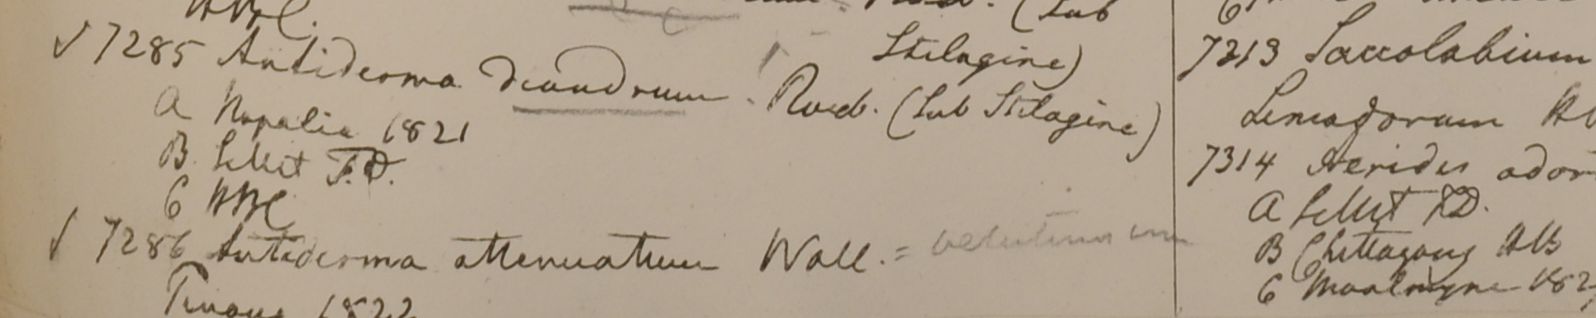 HBC
(Sub
Stilagine)
✓ 7285 Antiderma diandrum. Roxb. (Sub Stilagine)
A Napalia 1821
B Sillet F.D.
C HBC
✓ 7286 Antiderma attenuatum Wall. = velutinosum
Penang 1822
7213 Saccolabium
Limodorum
7314 Aerides odor
A Sillet F.D.
B Chittagong HB
C Moalmyne 182